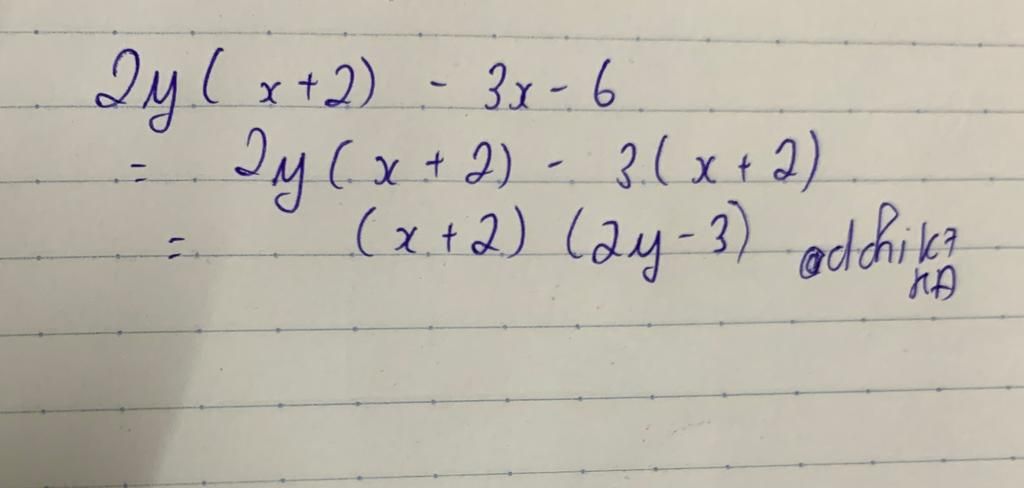 2y( x+2) - 3x - 6
= 2y( x + 2) - 3( x + 2)
= (x+2) (2y-3)